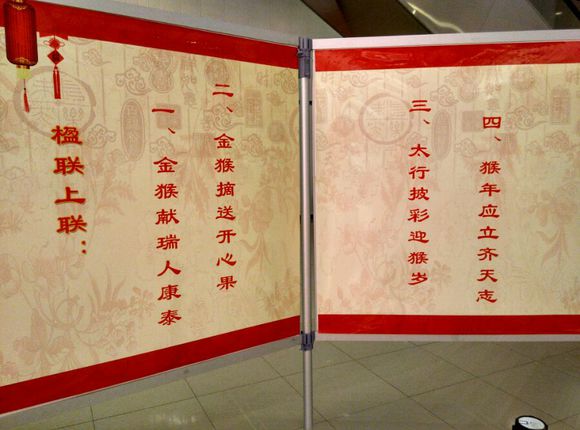 楹联上联：
一、金猴献瑞人康泰
二、金猴摘送开心果
三、太行披彩迎猴岁
四、猴年应立齐天志